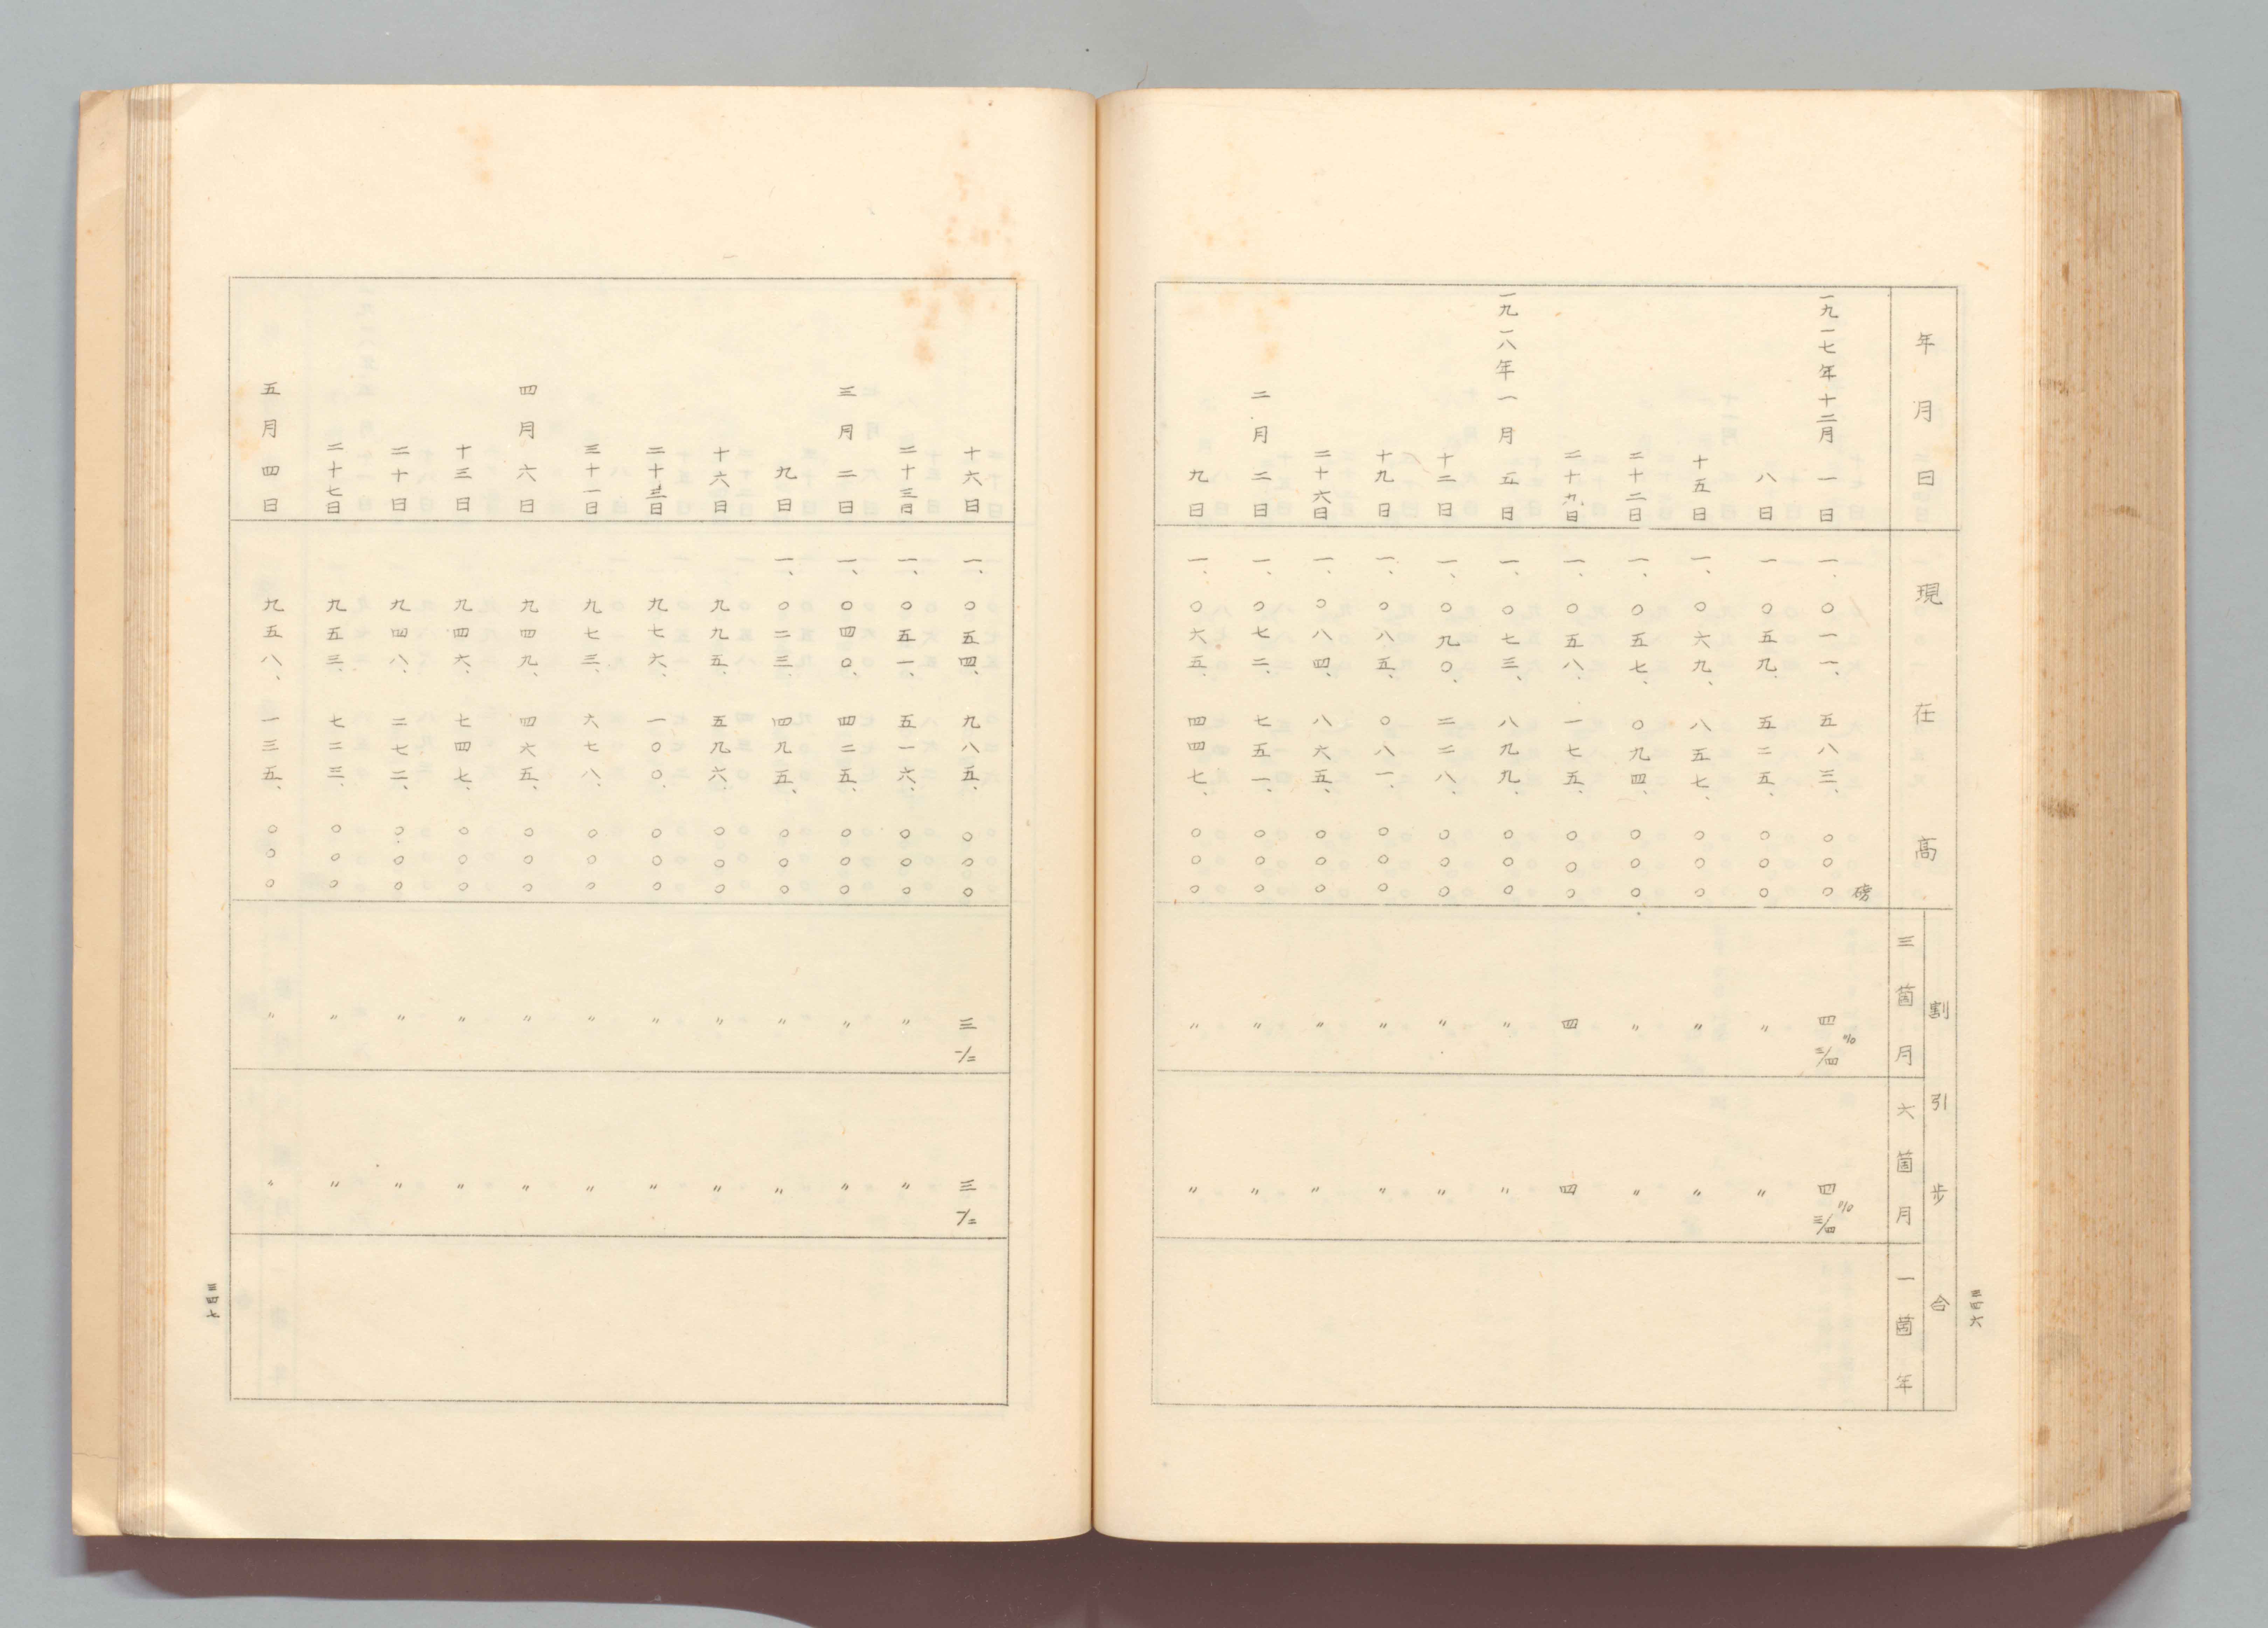 三四六
年月日 現在高 割引歩合
三箇月 六箇月 一箇年
一九一七年十二月一日 一、〇一一、五八三、〇〇〇磅 四三/四% 四三/四%
八日 一、〇五九、五二五、〇〇〇 〃 〃
十五日 一、〇六九、八五七、〇〇〇 〃 〃
二十二日 一、〇五七、〇九四、〇〇〇 〃 〃
二十九日 一、〇五八、一七五、〇〇〇 四 四
一九一八年一月五日 一、〇七三、八九九、〇〇〇 〃 〃
十二日 一、〇九〇、二二八、〇〇〇 〃 〃
十九日 一、〇八五、〇八一、〇〇〇 〃 〃
二十六日 一、〇八四、八六五、〇〇〇 〃 〃
二月二日 一、〇七二、七五一、〇〇〇 〃 〃
九日 一、〇六五、四四七、〇〇〇 〃 〃
十六日 一、〇五四、九八五、〇〇〇 三一/二 三一/二
二十三日 一、〇五一、五一六、〇〇〇 〃 〃
三月二日 一、〇四〇、四二五、〇〇〇 〃 〃
九日 一、〇二三、四九五、〇〇〇 〃 〃
十六日 九九五、五九六、〇〇〇 〃 〃
二十三日 九七六、一〇〇、〇〇〇 〃 〃
三十一日 九七三、六七八、〇〇〇 〃 〃
四月六日 九四九、四六五、〇〇〇 〃 〃
十三日 九四六、七四七、〇〇〇 〃 〃
二十日 九四八、二七二、〇〇〇 〃 〃
二十七日 九五三、七二三、〇〇〇 〃 〃
五月四日 九五八、一三五、〇〇〇 〃 〃
三四七